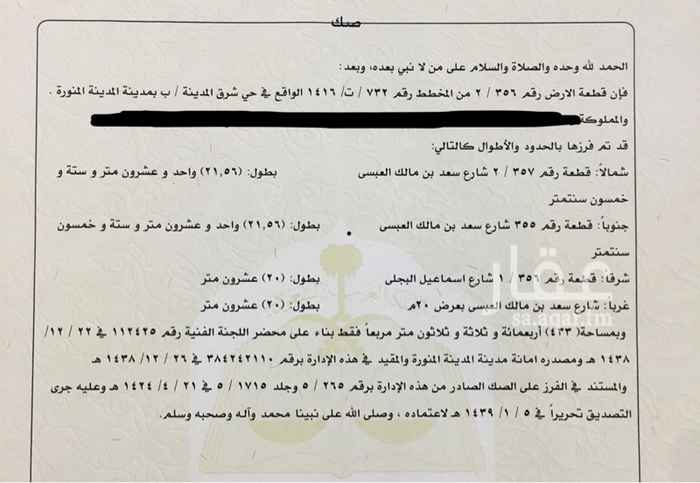 صك
الحمد لله وحده والصلاة والسلام على من لا نبي بعده، وبعد:
فإن قطعة الارض رقم ٣٥٦ / ٢ من المخطط رقم ٧٣٢ / ت/ ١٤١٦ الواقع في حي شرق المدينة / ب بمدينة المدينة المنورة .
والمملوكة
قد تم فرزها بالحدود والأطوال كالتالي:
شمالاً: قطعة رقم ٣٥٧ / ٢ شارع سعد بن مالك العبسى بطول: (٢١,٥٦) واحد و عشرون متر و ستة و
خمسون سنتمتر
جنوباً: قطعة رقم ٣٥٥ شارع سعد بن مالك العبسى بطول: (٢١,٥٦) واحد و عشرون متر و ستة و خمسون
سنتمتر
شرقا: قطعة رقم ٣٥٦ / ١ شارع اسماعيل البجلى بطول: (٢٠) عشرون متر
غربا: شارع سعد بن مالك العبسى بعرض ٢٠م بطول: (٢٠) عشرون متر
وبمساحة( ٤٣٣) أربعمائة و ثلاثة و ثلاثون متر مربعاً فقط بناء على محضر اللجنة الفنية رقم ١١٢٤٢٥ في ٢٢ / ١٢ /
١٤٣٨ هـ ومصدره امانة مدينة المدينة المنورة والمقيد في هذه الإدارة برقم ٣٨٤٢٤٢١١٠ في ٢٦ / ١٢ / ١٤٣٨ هـ
والمستند في الفرز على الصك الصادر من هذه الإدارة برقم ٢٦٥ / ٥ وجلد ١٧١٥ / ٥ في ٢١ / ٤ / ١٤٢٤ هـ وعليه جرى
التصديق تحريراً في ٥ / ١ / ١٤٣٩ هـ لاعتماده ، وصلى الله على نبينا محمد وآله وصحبه وسلم.
عقار
sa.aqar.fm